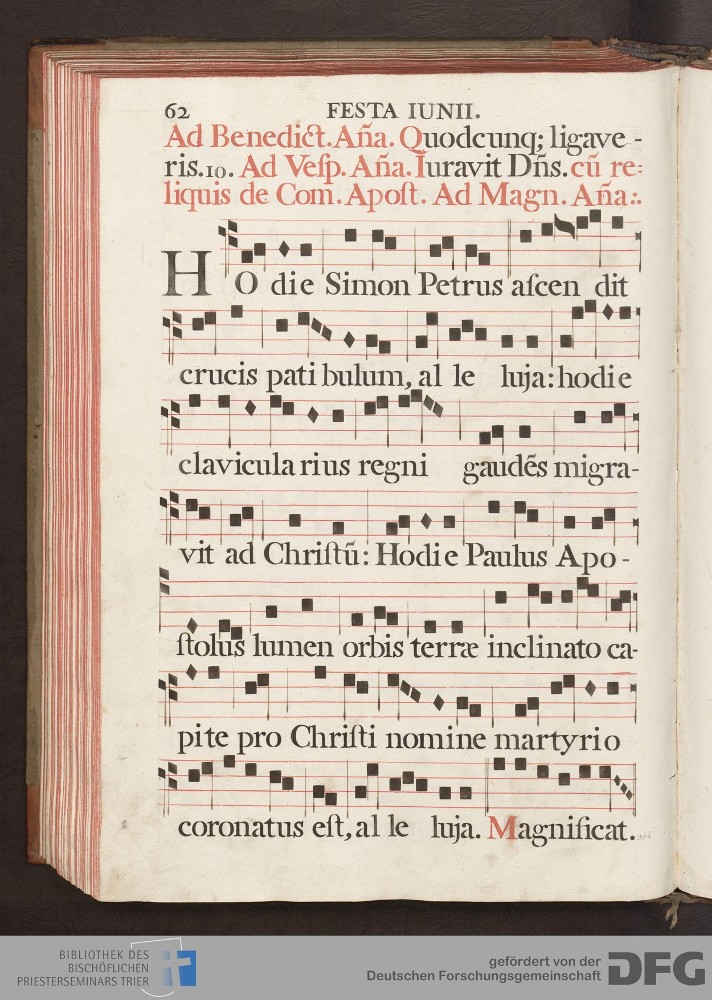 62 FESTA IUNII.
Ad Benedict. Aña. Quodcunq; ligave-
ris. 10. Ad Vesp. Aña. Iuravit Dñs. cũ re-
liquis de Com. Apost. Ad Magn. Aña:.
HO die Simon Petrus ascen dit
crucis pati bulum, al le luja: hodie
clavicula rius regni gaudẽs migra-
vit ad Christũ: Hodie Paulus Apo-
stolus lumen orbis terræ inclinato ca-
pite pro Christi nomine martyrio
coronatus est, al le luja. Magnificat.
BIBLIOTHEK DES
BISCHÖFLICHEN
PRIESTERSEMINARS TRIER
gefördert von der
Deutschen Forschungsgemeinschaft
DFG